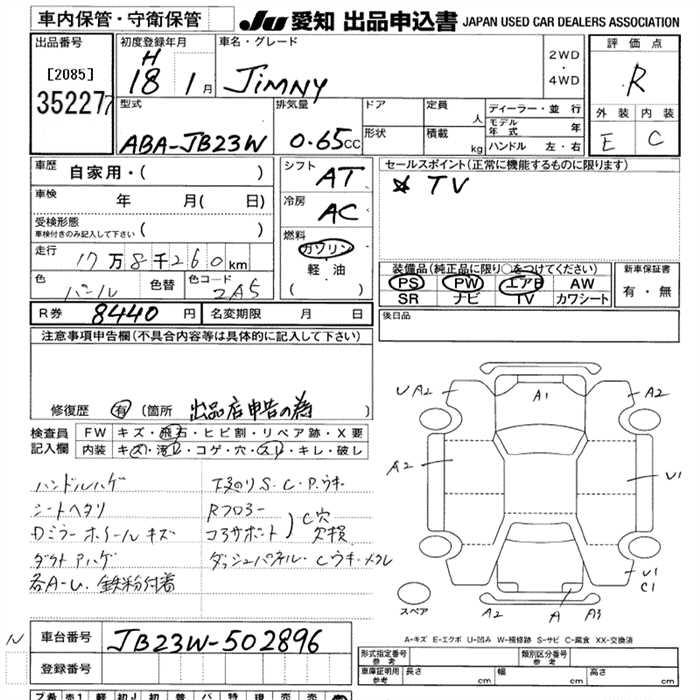 車内保管・守衛保管 JU 愛知 出品申込書 JAPAN USED CAR DEALERS ASSOCIATION
出品番号 初度登録年月 車名・グレード 評価点
[2085] H 18 1月 JIMNY 2WD・4WD R
35227
型式 排気量 ドア 定員 人 ディーラー・並行 外装 内装
ABA-JB23W 0.65CC 形状 積載 kg モデル年式 年 E C
ハンドル 左・右
車歴 自家用・( ) シフト AT セールスポイント(正常に機能するものに限ります)
車検 年 月( 日) 冷房 AC ☆ TV
受検形態 ( )
車検付きのみ記入して下さい
燃料 ガソリン
走行 17万8千260km 軽油 装備品(純正品に限り○をつけてください) 新車保証書
色 パール 色替 色コード 2A5 ( ) PS PW エアB AW 有・無
SR ナビ TV カワシート
R券 8440円 名変期限 月 日 後日品
注意事項申告欄(不具合内容等は具体的に記入して下さい)
修復歴 有 (箇所 出品店申告の為 )
検査員記入欄 FW キズ・飛石・ヒビ割・リペア跡・X要
内装 キズ・汚レ・コゲ・穴・スレ・キレ・破レ
ハンドルハゲ
シートヘタリ Rフロアー
コアサポート C穴
ダッシュパネル・Cウキ・メクレ
各A・U、鉄粉付着
UA2 A1 A2
A2 U1
U1
C1
スペア A2 A A3
A-キズ E-エクボ U-凹み W-補修跡 S-サビ C-腐食 XX-交換済
N 車台番号 JB23W-502896
登録番号
形式指定番号 参考 類別区分番号 参考
車庫証明用 参考 長さ cm 幅 cm 高さ cm